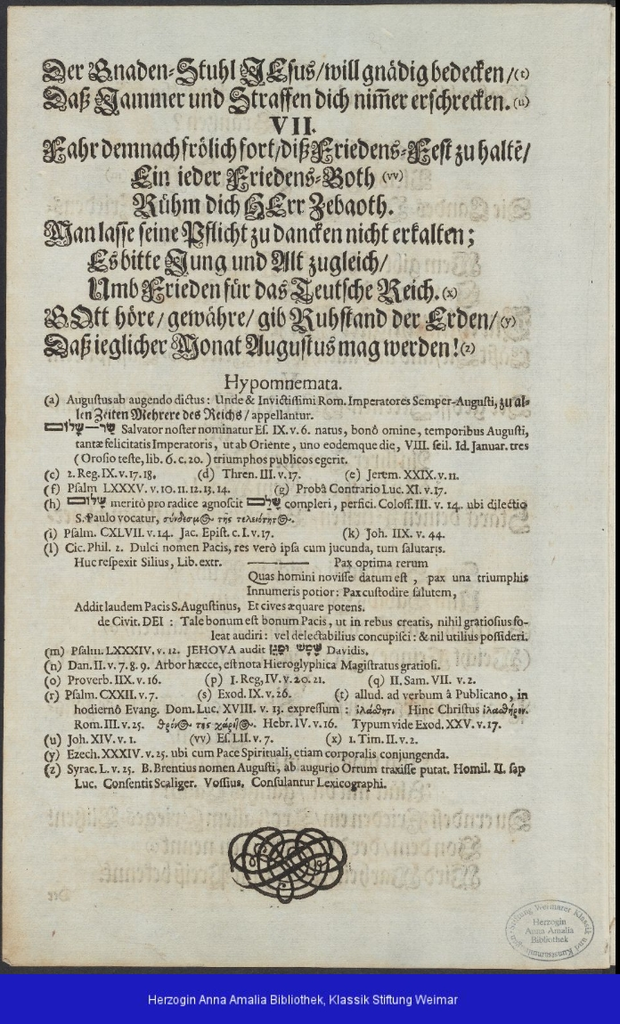 Der Gnaden-Stuhl JEsus/will gnädig bedecken/(t)
Daß Jammer und Straffen dich nim̄er erschrecken.(u)
VII.
Fahr demnach frölich fort/diß Friedens-Fest zu haltẽ/
Ein ieder Friedens-Both (vv)
Rühm dich HErr Zebaoth.
Man lasse seine Pflicht zu dancken nicht erkalten;
Es bitte Jung und Alt zugleich/
Umb Frieden für das Teutsche Reich.(x)
GOtt höre/gewähre/gib Ruhstand der Erden/(y)
Daß ieglicher Monat Augustus mag werden!(z)
Hypomnemata.
(a) Augustus ab augendo dictus: Unde & Invictissimi Rom. Imperatores Semper-Augusti, zu al-
len Zeiten Mehrere des Reichs/appellantur.
שר־שלום Salvator noster nominatur Es. IX. v. 6. natus, bonô omine, temporibus Augusti,
tantæ felicitatis Imperatoris, ut ab Oriente, uno eodemque die, VIII. scil. Id. Januar. tres
(Orosio teste, lib. 6. c. 20.) triumphos publicos egerit.
(c) 2. Reg. IX. v. 17. 18. (d) Thren. III. v. 17. (e) Jerem. XXIX. v. 11.
(f) Psalm LXXXV. v. 10. 11. 12. 13. 14. (g) Probâ Contrario Luc. XI. v. 17.
(h) שלום meritò pro radice agnoscit שלם compleri, perfici. Coloss. III. v. 14. ubi dilectio
S. Paulo vocatur, σύνδεσμος τῆς τελειότητος.
(i) Psalm. CXLVII. v. 14. Jac. Epist. c. I. v. 17. (k) Joh. IIX. v. 44.
(l) Cic. Phil. 2. Dulci nomen Pacis, res verò ipsa cum jucunda, tum salutaris.
Huc respexit Silius, Lib. extr. ——— Pax optima rerum
Quas homini novisse datum est, pax una triumphis
Innumeris potior: Pax custodire salutem,
Addit laudem Pacis S. Augustinus, Et cives æquare potens.
de Civit. DEI: Tale bonum est bonum Pacis, ut in rebus creatis, nihil gratiosius so-
leat audiri: vel delectabilius concupisci: & nil utilius possideri.
(m) Psalm. LXXXIV. v. 12. JEHOVA audit שמש ומגן Davidis.
(n) Dan. II. v. 7. 8. 9. Arbor hæcce, est nota Hieroglyphica Magistratus gratiosi.
(o) Proverb. IIX. v. 16. (p) I. Reg, IV. v. 20. 21. (q) II. Sam. VII. v. 2.
(r) Psalm. CXXII. v. 7. (s) Exod. IX. v. 26. (t) allud. ad verbum à Publicano, in
hodiernô Evang. Dom. Luc. XVIII. v. 13. expressum: ἱλάσθητι. Hinc Christus ἱλαστήριον.
Rom. III. v. 25. θρόνος τῆς χάριτος. Hebr. IV. v. 16. Typum vide Exod. XXV. v. 17.
(u) Joh. XIV. v. 1. (vv) Es. LII. v. 7. (x) 1. Tim. II. v. 2.
(y) Ezech. XXXIV. v. 25. ubi cum Pace Spirituali, etiam corporalis conjungenda.
(z) Syrac. L. v. 25. B. Brentius nomen Augusti, ab augurio Ortum traxisse putat. Homil. II. sup
Luc. Consentit Scaliger. Vossius, Consulantur Lexicographi.
Stiftung Weimarer Klassik und Kunstsammlungen
Herzogin
Anna Amalia
Bibliothek
Herzogin Anna Amalia Bibliothek, Klassik Stiftung Weimar